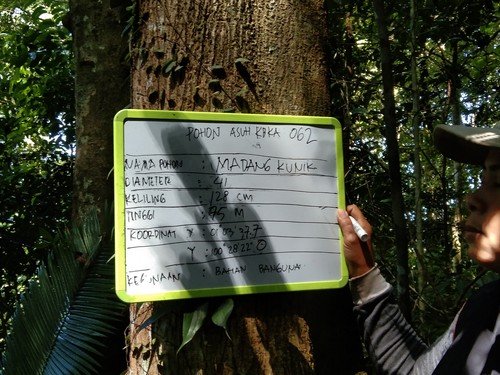 POHON ASUH KPKA 062
NAMA POHON : MADANG KUNIK
DIAMETER : 41
KELILING : 128 cm
TINGGI : 45 M
KOORDINAT X : 0°03'37,7
Y : 100°28'22"0
KEGUNAAN : BAHAN BANGUNAN